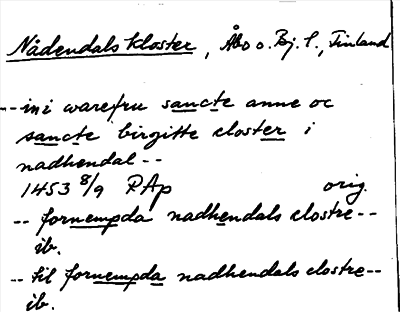 Nådendals kloster, Åbo o. Bj. l., Finland
-- in i warefru sancte anne oc
sancte birgitte closter i
nadhendal --
1453 8/9 PAp orig.
-- fornempda nadhendals clostre --
ib.
-- til fornempda nadhendals clostre --
ib.